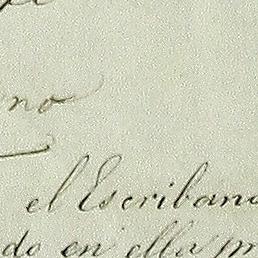 no
el Escribano
do en ella pr